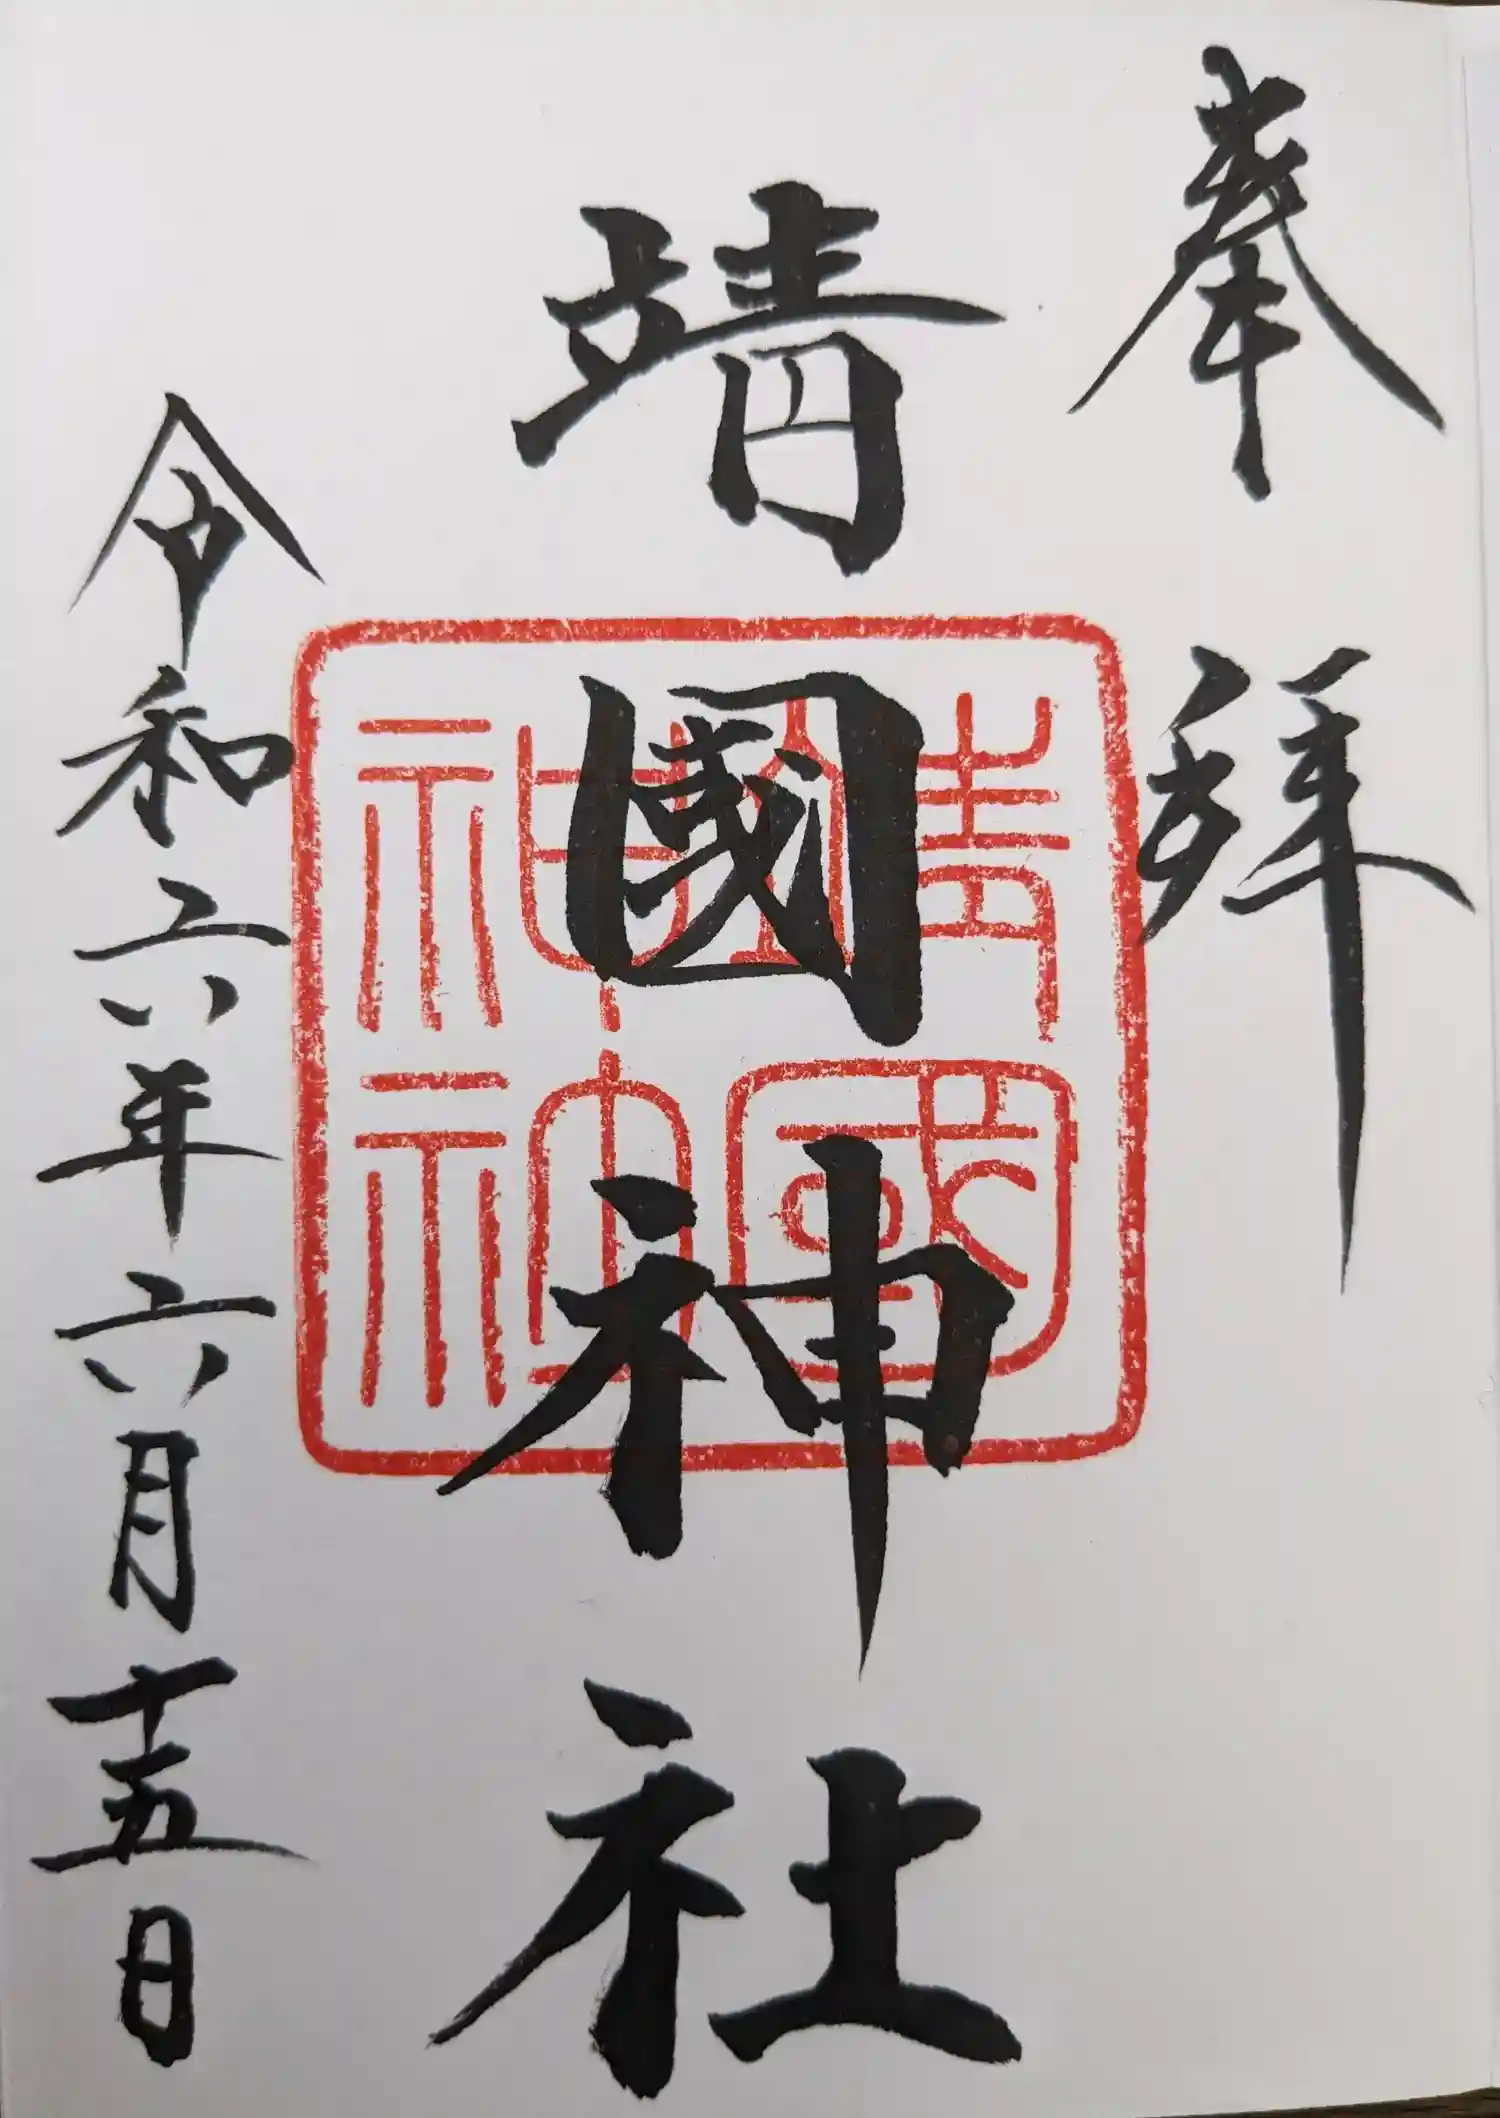 奉拝
靖國神社
令和六年六月十五日
靖國
神社